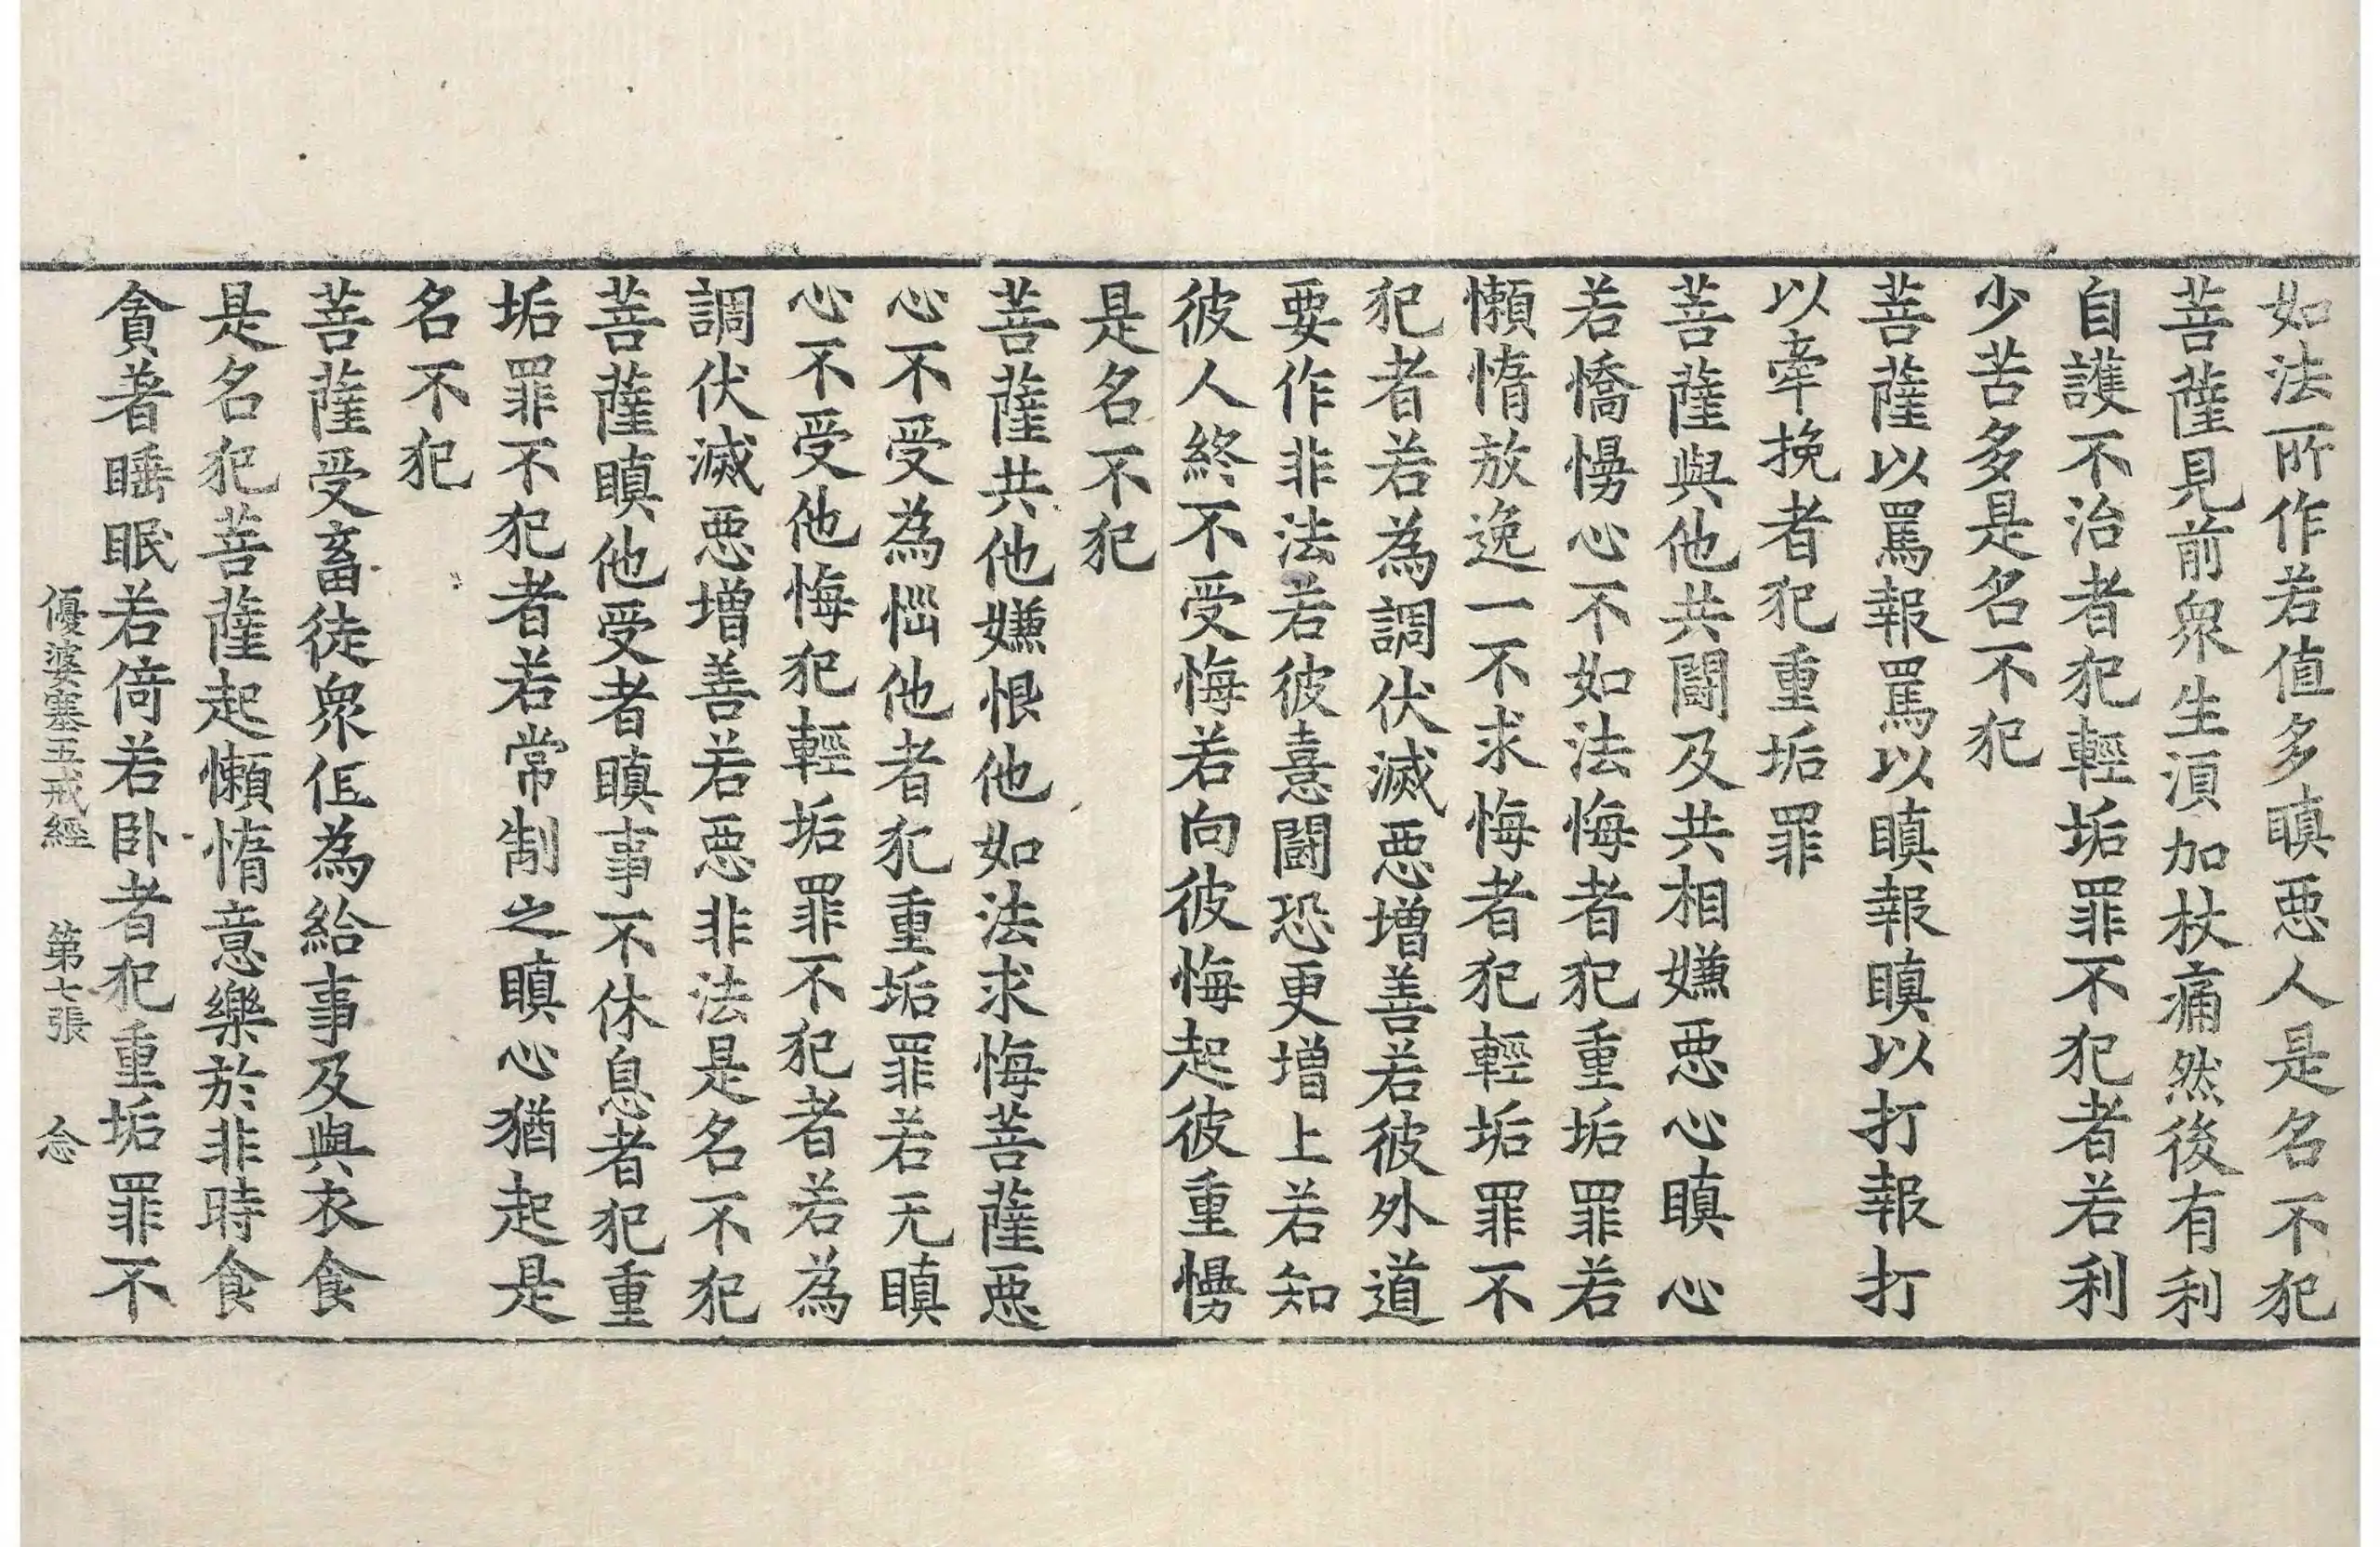 如法所作若值多瞋悪人是名不犯
菩薩見前衆生湏加杖痛然後有利
自護不治者犯輕垢罪不犯者若利
少苦多是名不犯
菩薩以罵報罵以瞋報瞋以打報打
以牽挽者犯重垢罪
菩薩與他共鬪及共相嫌悪心瞋心
若憍慢心不如法悔者犯重垢罪若
懶惰放逸一不求悔者犯輕垢罪不
犯者若為調伏滅悪增善若彼外道
要作非法若彼憙鬪恐更增上若知
彼人終不受悔若向彼悔起彼重慢
是名不犯
菩薩共他嫌恨他如法求悔菩薩悪
心不受為惱他者犯重垢罪若无瞋
心不受他悔犯輕垢罪不犯者若為
調伏滅悪增善若悪非法是名不犯
菩薩瞋他受者瞋事不休息者犯重
垢罪不犯者若常制之瞋心猶起是
名不犯
菩薩受畜徒衆伹為給事及與衣食
是名犯菩薩起懶惰意樂於非時食
貪著睡眠若倚若卧者犯重垢罪不
優婆塞五戒經 第七張 念